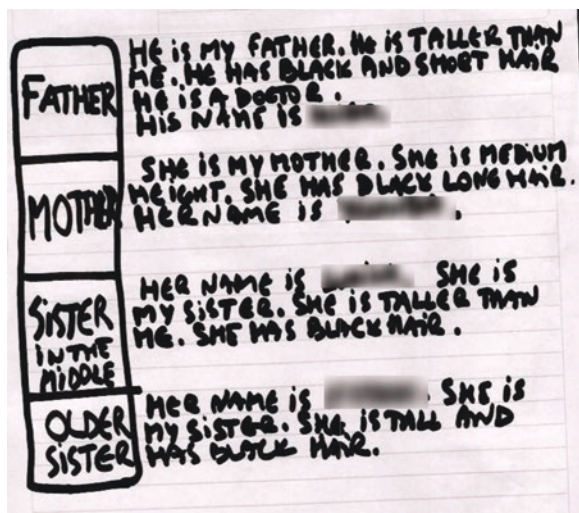 FATHER
HE IS MY FATHER. HE IS TALLER THAN
ME. HE HAS BLACK AND SHORT HAIR
HE IS A DOCTOR.
HIS NAME IS
MOTHER
SHE IS MY MOTHER. SHE IS MEDIUM
HEIGHT. SHE HAS BLACK LONG HAIR.
HER NAME IS .
SISTER
IN THE
MIDDLE
HER NAME IS . SHE IS
MY SISTER. SHE IS TALLER THAN
ME. SHE HAS BLACK HAIR.
OLDER
SISTER
HER NAME IS . SHE IS
MY SISTER. SHE IS TALL AND
HAS BLACK HAIR.